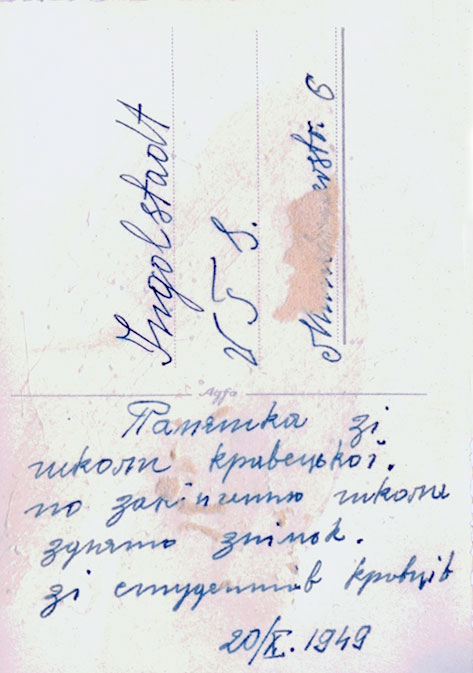 Ingolstadt
VTS.
str. 6
Agfa
Памятка зі
школи кравецької.
по закінченню школи
зднято знімок.
зі студентів кравців
20/X. 1949